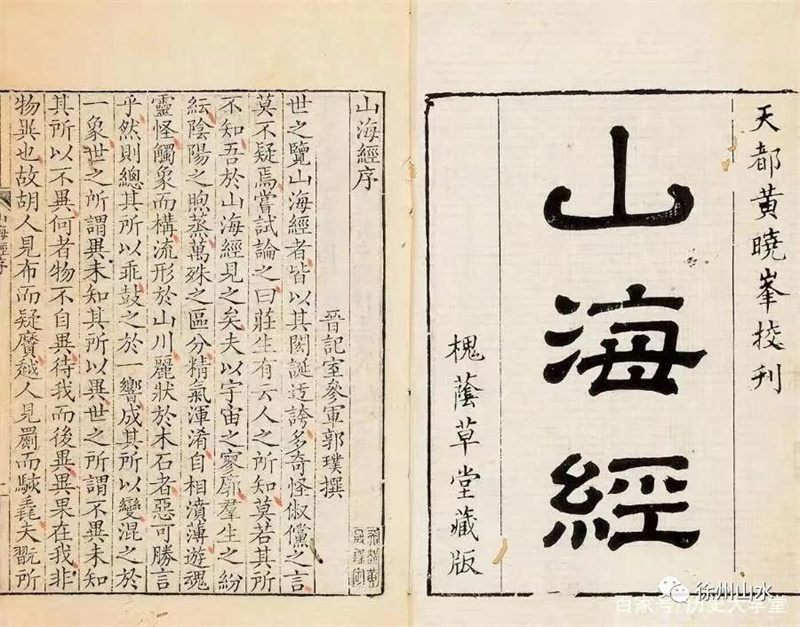 天都黄曉峯挍刊
山海經
槐蔭草堂藏版
山海經序
晉記室參軍郭璞撰
世之覽山海經者皆以其閎誕迂誇多奇怪俶儻之言
莫不疑焉嘗試論之曰莊生有云人之所知莫若其所
不知吾於山海經見之矣夫以宇宙之寥廓羣生之紛
紜陰陽之煦蒸萬殊之區分精氣渾淆自相濆薄遊魂
靈怪觸象而構流形於山川麗狀於木石者惡可勝言
乎然則總其所以乖鼓之於一響成其所以變混之於
一象世之所謂異未知其所以異世之所謂不異未知
其所以不異何者物不自異待我而後異異果在我非
物異也故胡人見布而疑黂越人見罽而駭毳夫翫所
山海經序
徐州山水
百家号/历史大学堂